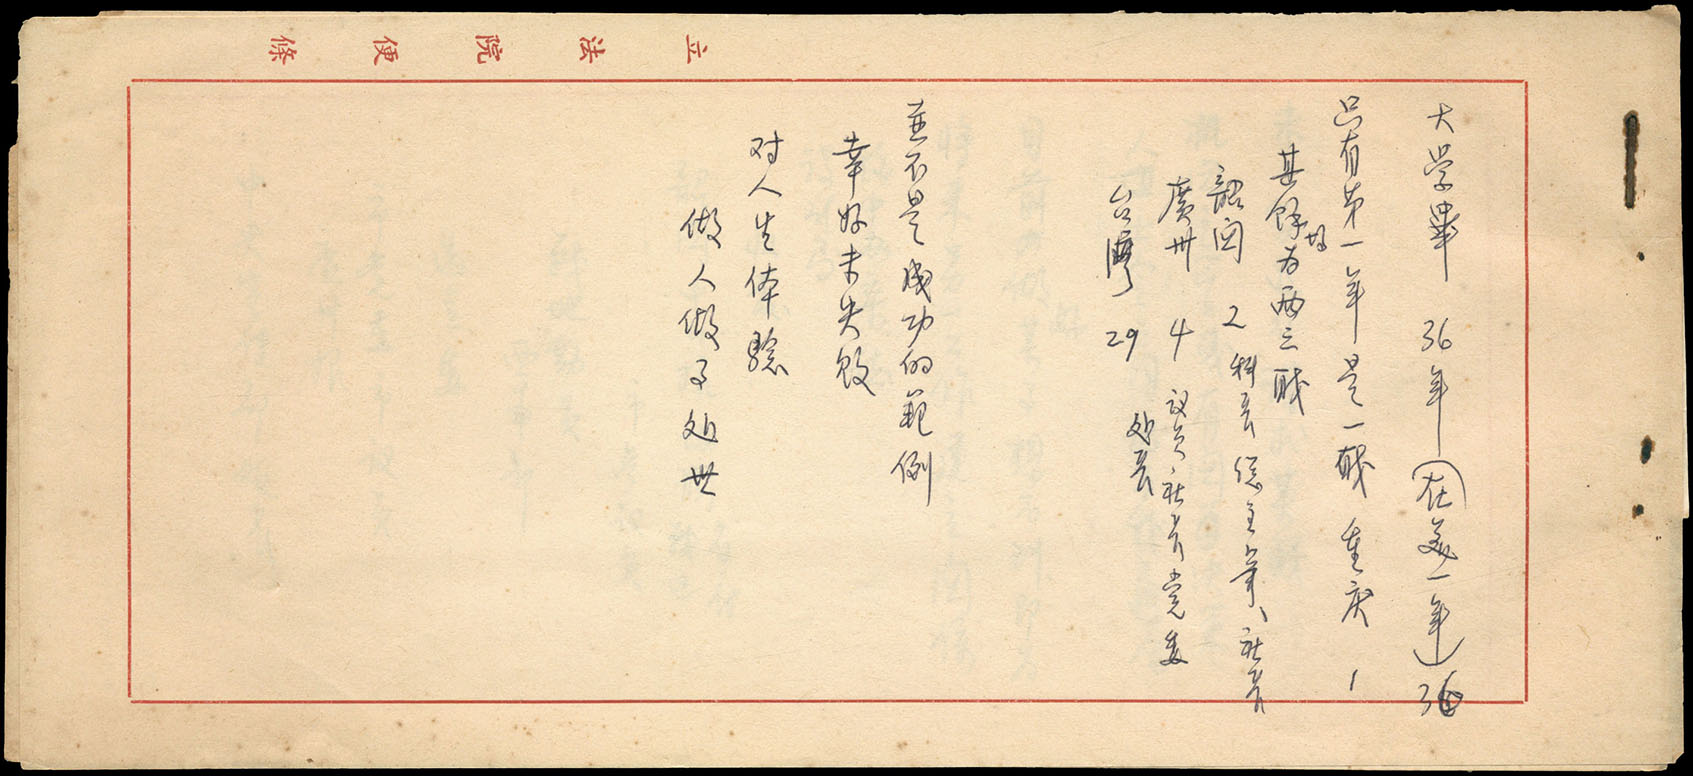 立法院便條
大学畢 36年（在美一年）36
只有第一年是一职 重庆 1
其餘均为两三职
韶関 2 科長 总主筆、社長
廣州 4 议员 社長 党委
台灣 29 处長
並不是成功的範例
幸好未失敗
对人生体驗
做人做事处世